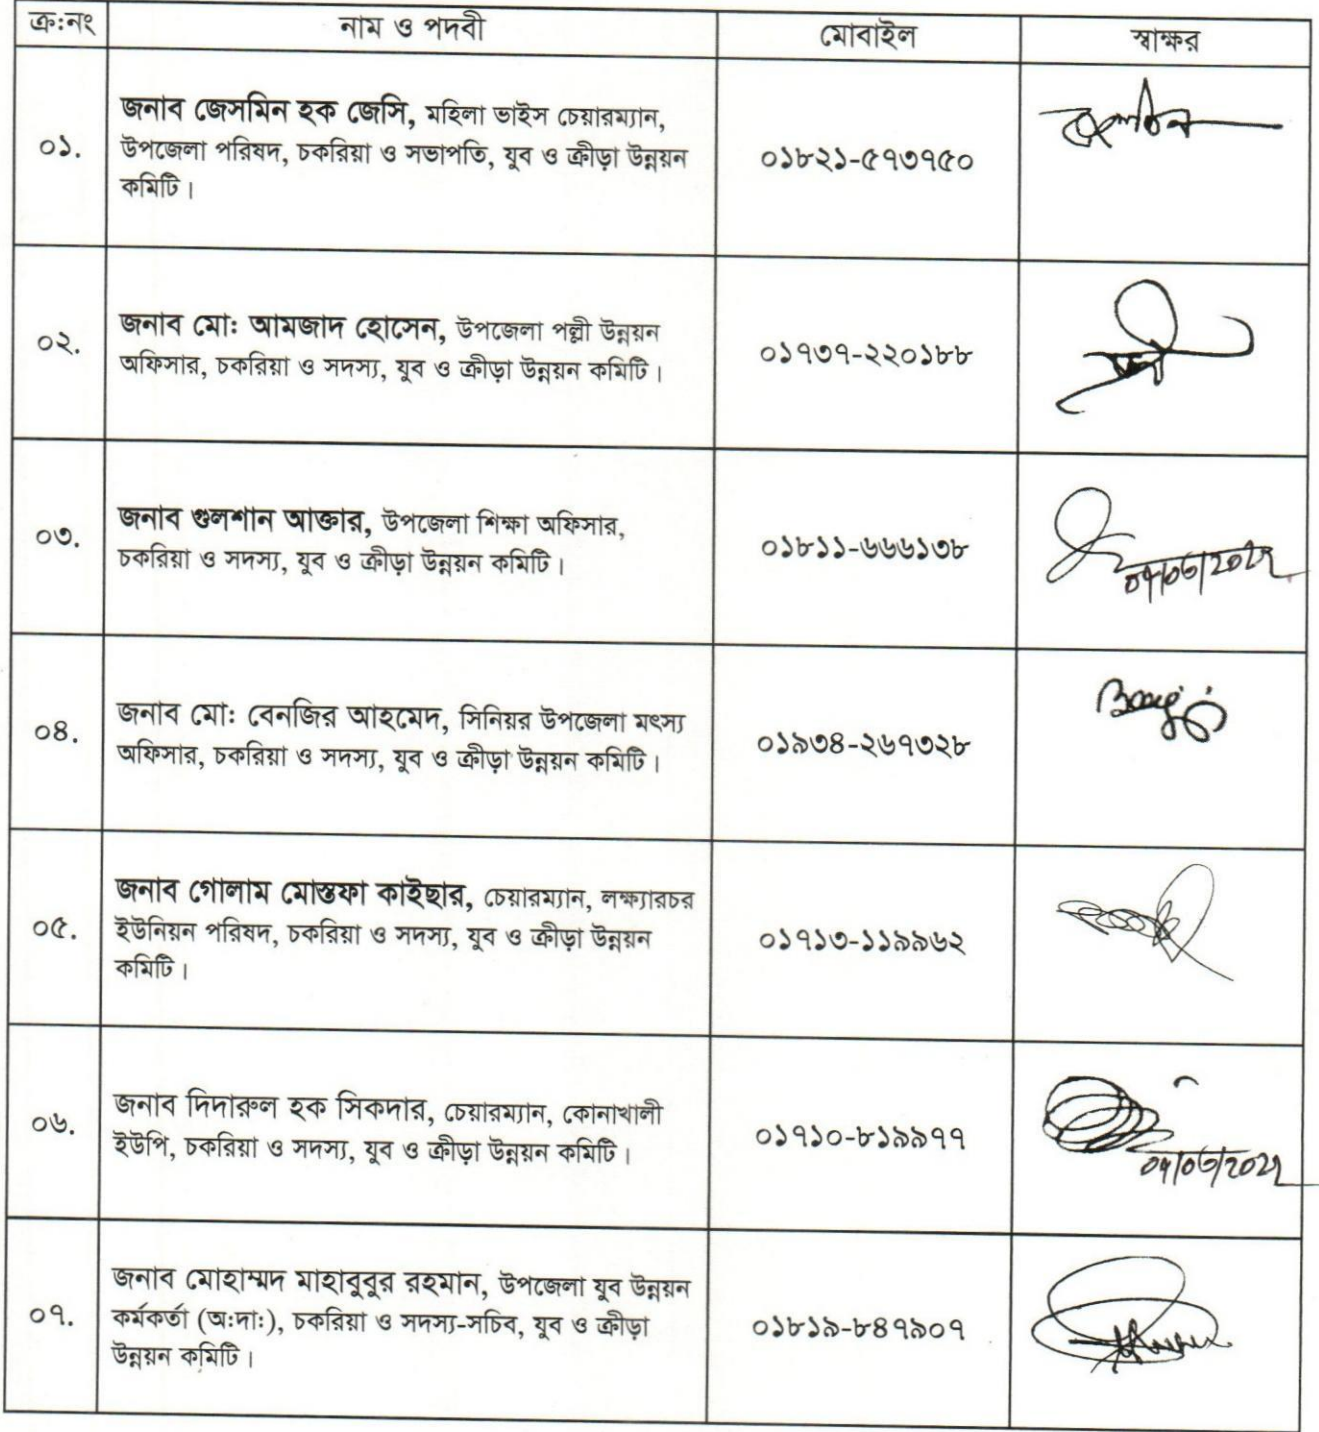 ক্র:নং নাম ও পদবী মোবাইল স্বাক্ষর
জনাব জেসমিন হক জেসি, মহিলা ভাইস চেয়ারম্যান,
০১. উপজেলা পরিষদ, চকরিয়া ও সভাপতি, যুব ও ক্রীড়া উন্নয়ন ০১৮২১-৫৭৩৭৫০
কমিটি।
জনাব মো: আমজাদ হোসেন, উপজেলা পল্লী উন্নয়ন
০২. অফিসার, চকরিয়া ও সদস্য, যুব ও ক্রীড়া উন্নয়ন কমিটি। ০১৭৩৭-২২০১৮৮
জনাব গুলশান আক্তার, উপজেলা শিক্ষা অফিসার,
০৩. চকরিয়া ও সদস্য, যুব ও ক্রীড়া উন্নয়ন কমিটি। ০১৮১১-৬৬৬১৩৮
জনাব মো: বেনজির আহমেদ, সিনিয়র উপজেলা মৎস্য
০৪. অফিসার, চকরিয়া ও সদস্য, যুব ও ক্রীড়া উন্নয়ন কমিটি। ০১৯৩৪-২৬৭৩২৮
জনাব গোলাম মোস্তফা কাইছার, চেয়ারম্যান, লক্ষ্যারচর
০৫. ইউনিয়ন পরিষদ, চকরিয়া ও সদস্য, যুব ও ক্রীড়া উন্নয়ন ০১৭১৩-১১৯৯৬২
কমিটি।
জনাব দিদারুল হক সিকদার, চেয়ারম্যান, কোনাখালী
০৬. ইউপি, চকরিয়া ও সদস্য, যুব ও ক্রীড়া উন্নয়ন কমিটি। ০১৭১০-৮১৯৯৭৭
জনাব মোহাম্মদ মাহাবুবুর রহমান, উপজেলা যুব উন্নয়ন
০৭. কর্মকর্তা (অ:দা:), চকরিয়া ও সদস্য-সচিব, যুব ও ক্রীড়া ০১৮১৯-৮৪৭৯০৭
উন্নয়ন কমিটি।